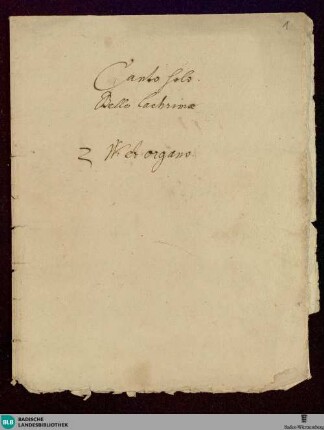 1
Canto solo.
Belle lachrime
2 W et organo
BLB BADISCHE
LANDESBIBLIOTHEK
Baden-Württemberg